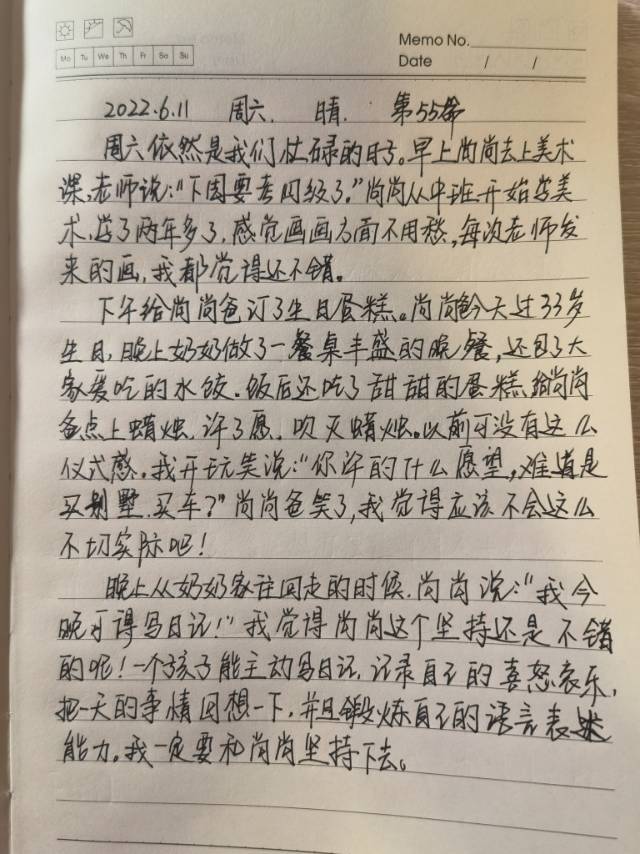 Memo No.
Mo Tu We Th Fr Sa Su
Date / /
2022.6.11 周六. 晴. 第55篇
周六依然是我们忙碌的日子。早上尚尚去上美术
课,老师说:“下周要考四级了。”尚尚从中班开始学美
术,学了两年多了,感觉画画方面不用愁,每次老师发
来的画,我都觉得还不错。
下午给尚尚爸订了生日蛋糕。尚尚爸今天过33岁
生日,晚上奶奶做了一餐桌丰盛的晚餐,还包了大
家爱吃的水饺.饭后还吃了甜甜的蛋糕,给尚尚
爸点上蜡烛,许了愿,吹灭蜡烛。以前可没有这么
仪式感。我开玩笑说:“你许的什么愿望,难道是
买别墅.买车?”尚尚爸笑了,我觉得应该不会这么
不切实际吧!
晚上从奶奶家往回走的时候,尚尚说:“我今
晚可得写日记!”我觉得尚尚这个坚持还是不错
的呢!一个孩子能主动写日记,记录自己的喜怒哀乐,
把一天的事情回想一下,并且锻炼自己的语言表达
能力。我一定要和尚尚坚持下去。